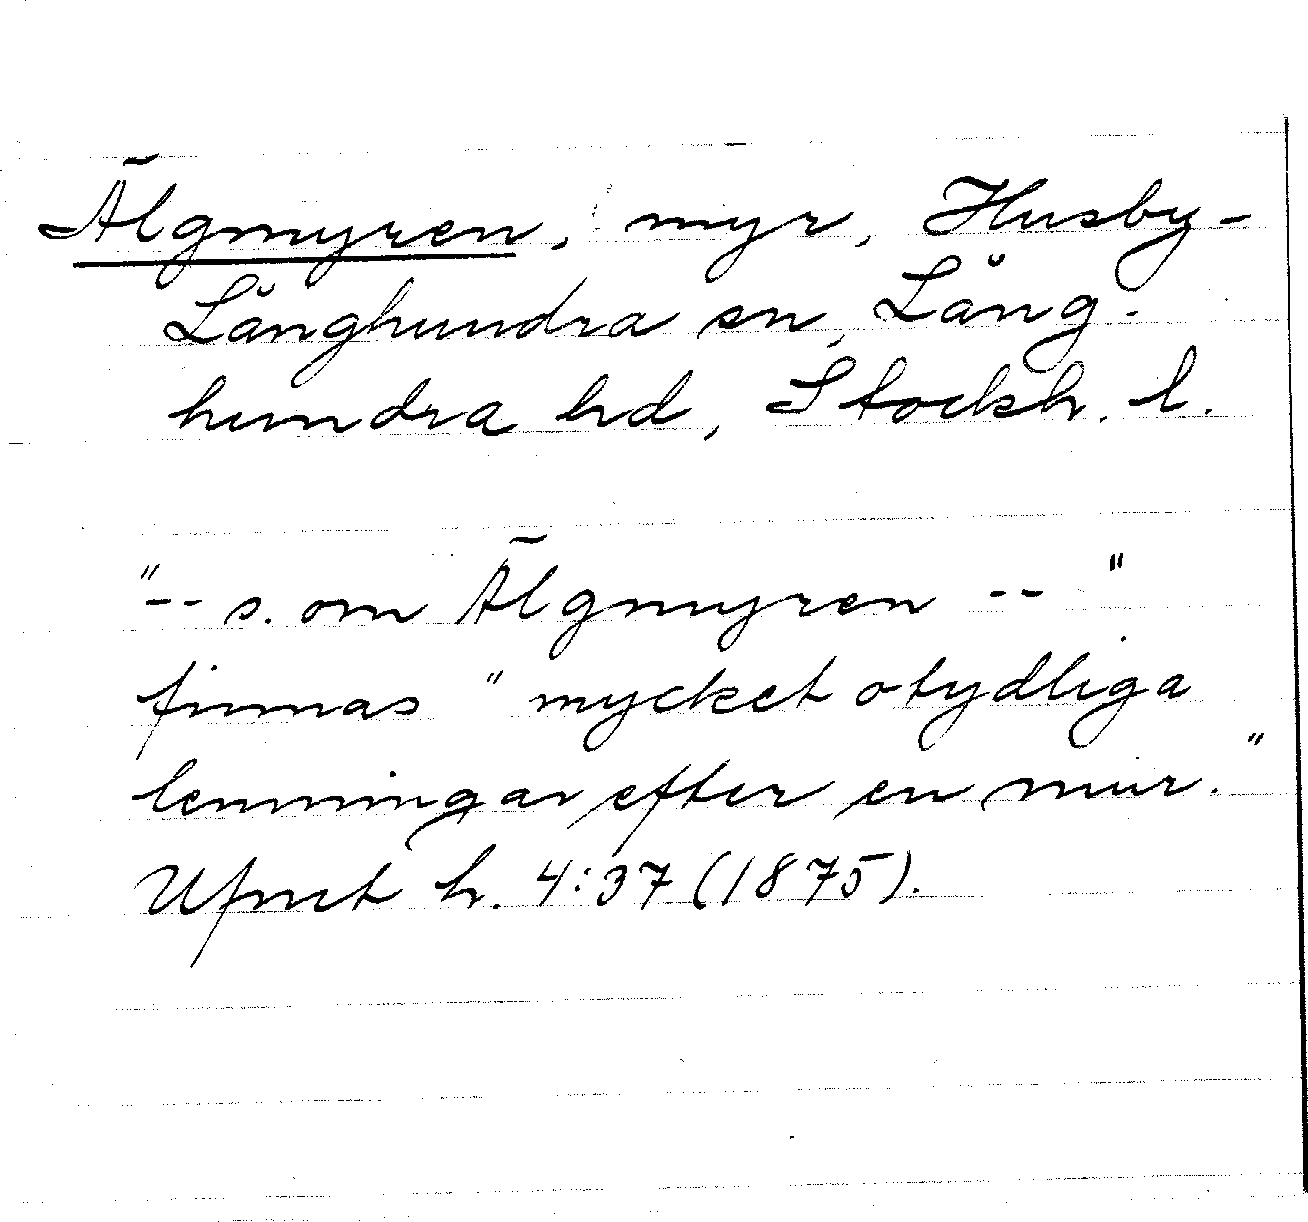 Älgmyren, myr, Husby-
Långhundra sn, Lång-
hundra hd, Stockh. l.
"-- s. om Älgmyren --"
finnas "mycket otydliga
lemningar efter en mur."
Ufmt h. 4:37 (1875).